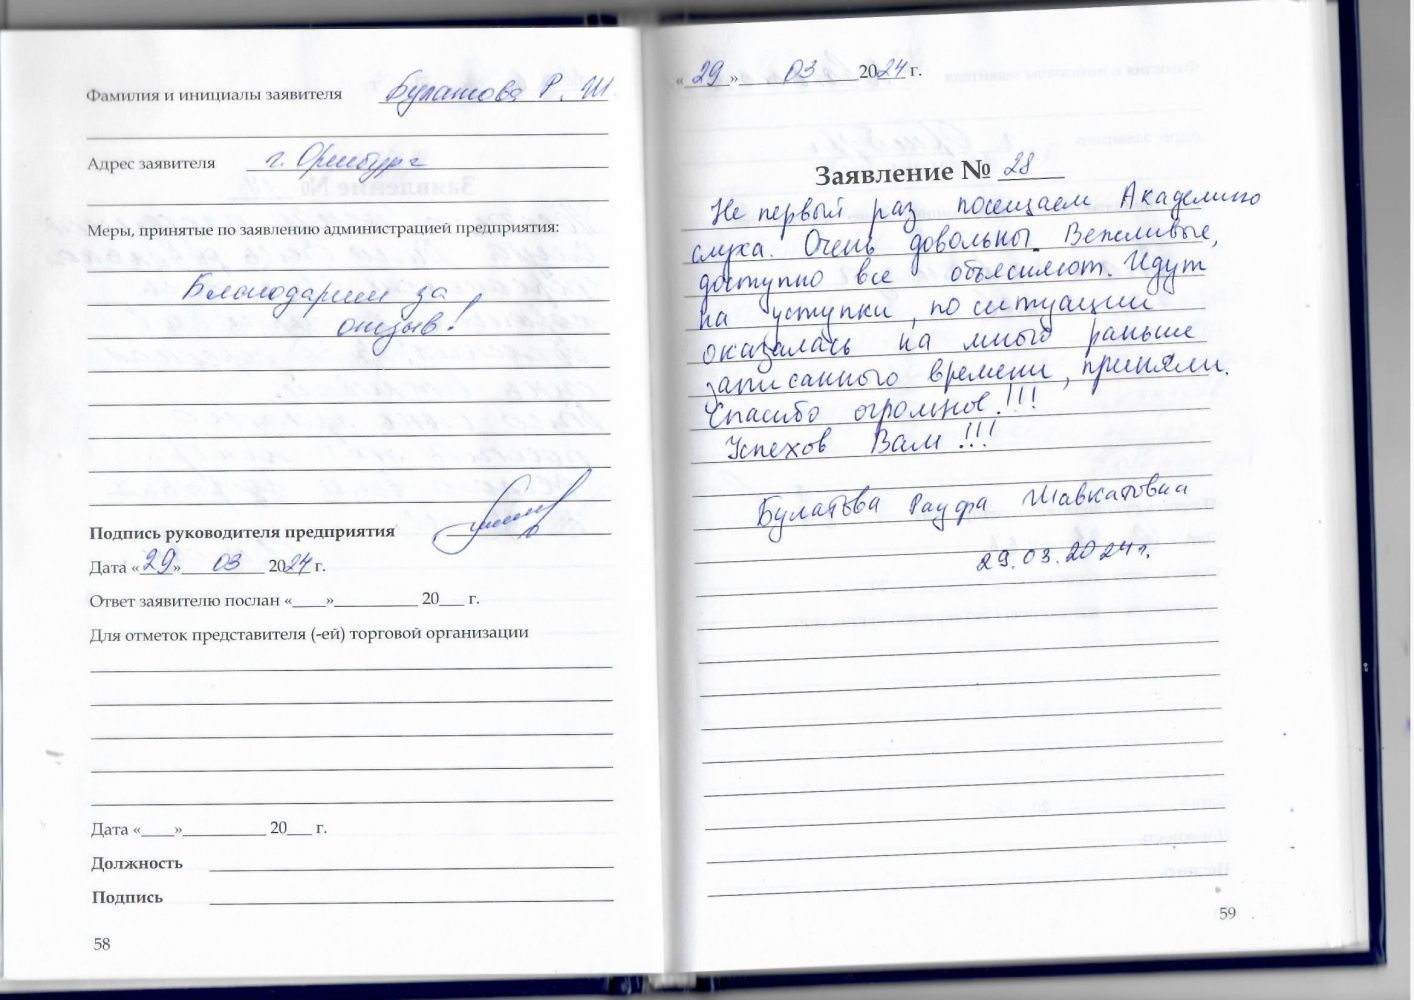 Фамилия и инициалы заявителя Булатова Р. Ш.
Адрес заявителя г. Оренбург
Меры, принятые по заявлению администрацией предприятия:
Благодарим за
отзыв!
Подпись руководителя предприятия
Дата «29» 03 2024 г.
Ответ заявителю послан «____»__________ 20___ г.
Для отметок представителя (-ей) торговой организации
Дата «____»__________ 20___ г.
Должность
Подпись
58
«29» 03 2024 г.
Заявление № 28
Не первый раз посещаем Академию
слуха. Очень довольны. Вежливые,
доступно все объясняют. Идут
на уступки, по ситуации
оказалась на много раньше
записанного времени, приняли.
Спасибо огромное!!!
Успехов Вам!!!
Булатова Рауфа Шавкатовна
29.03.2024г.
59